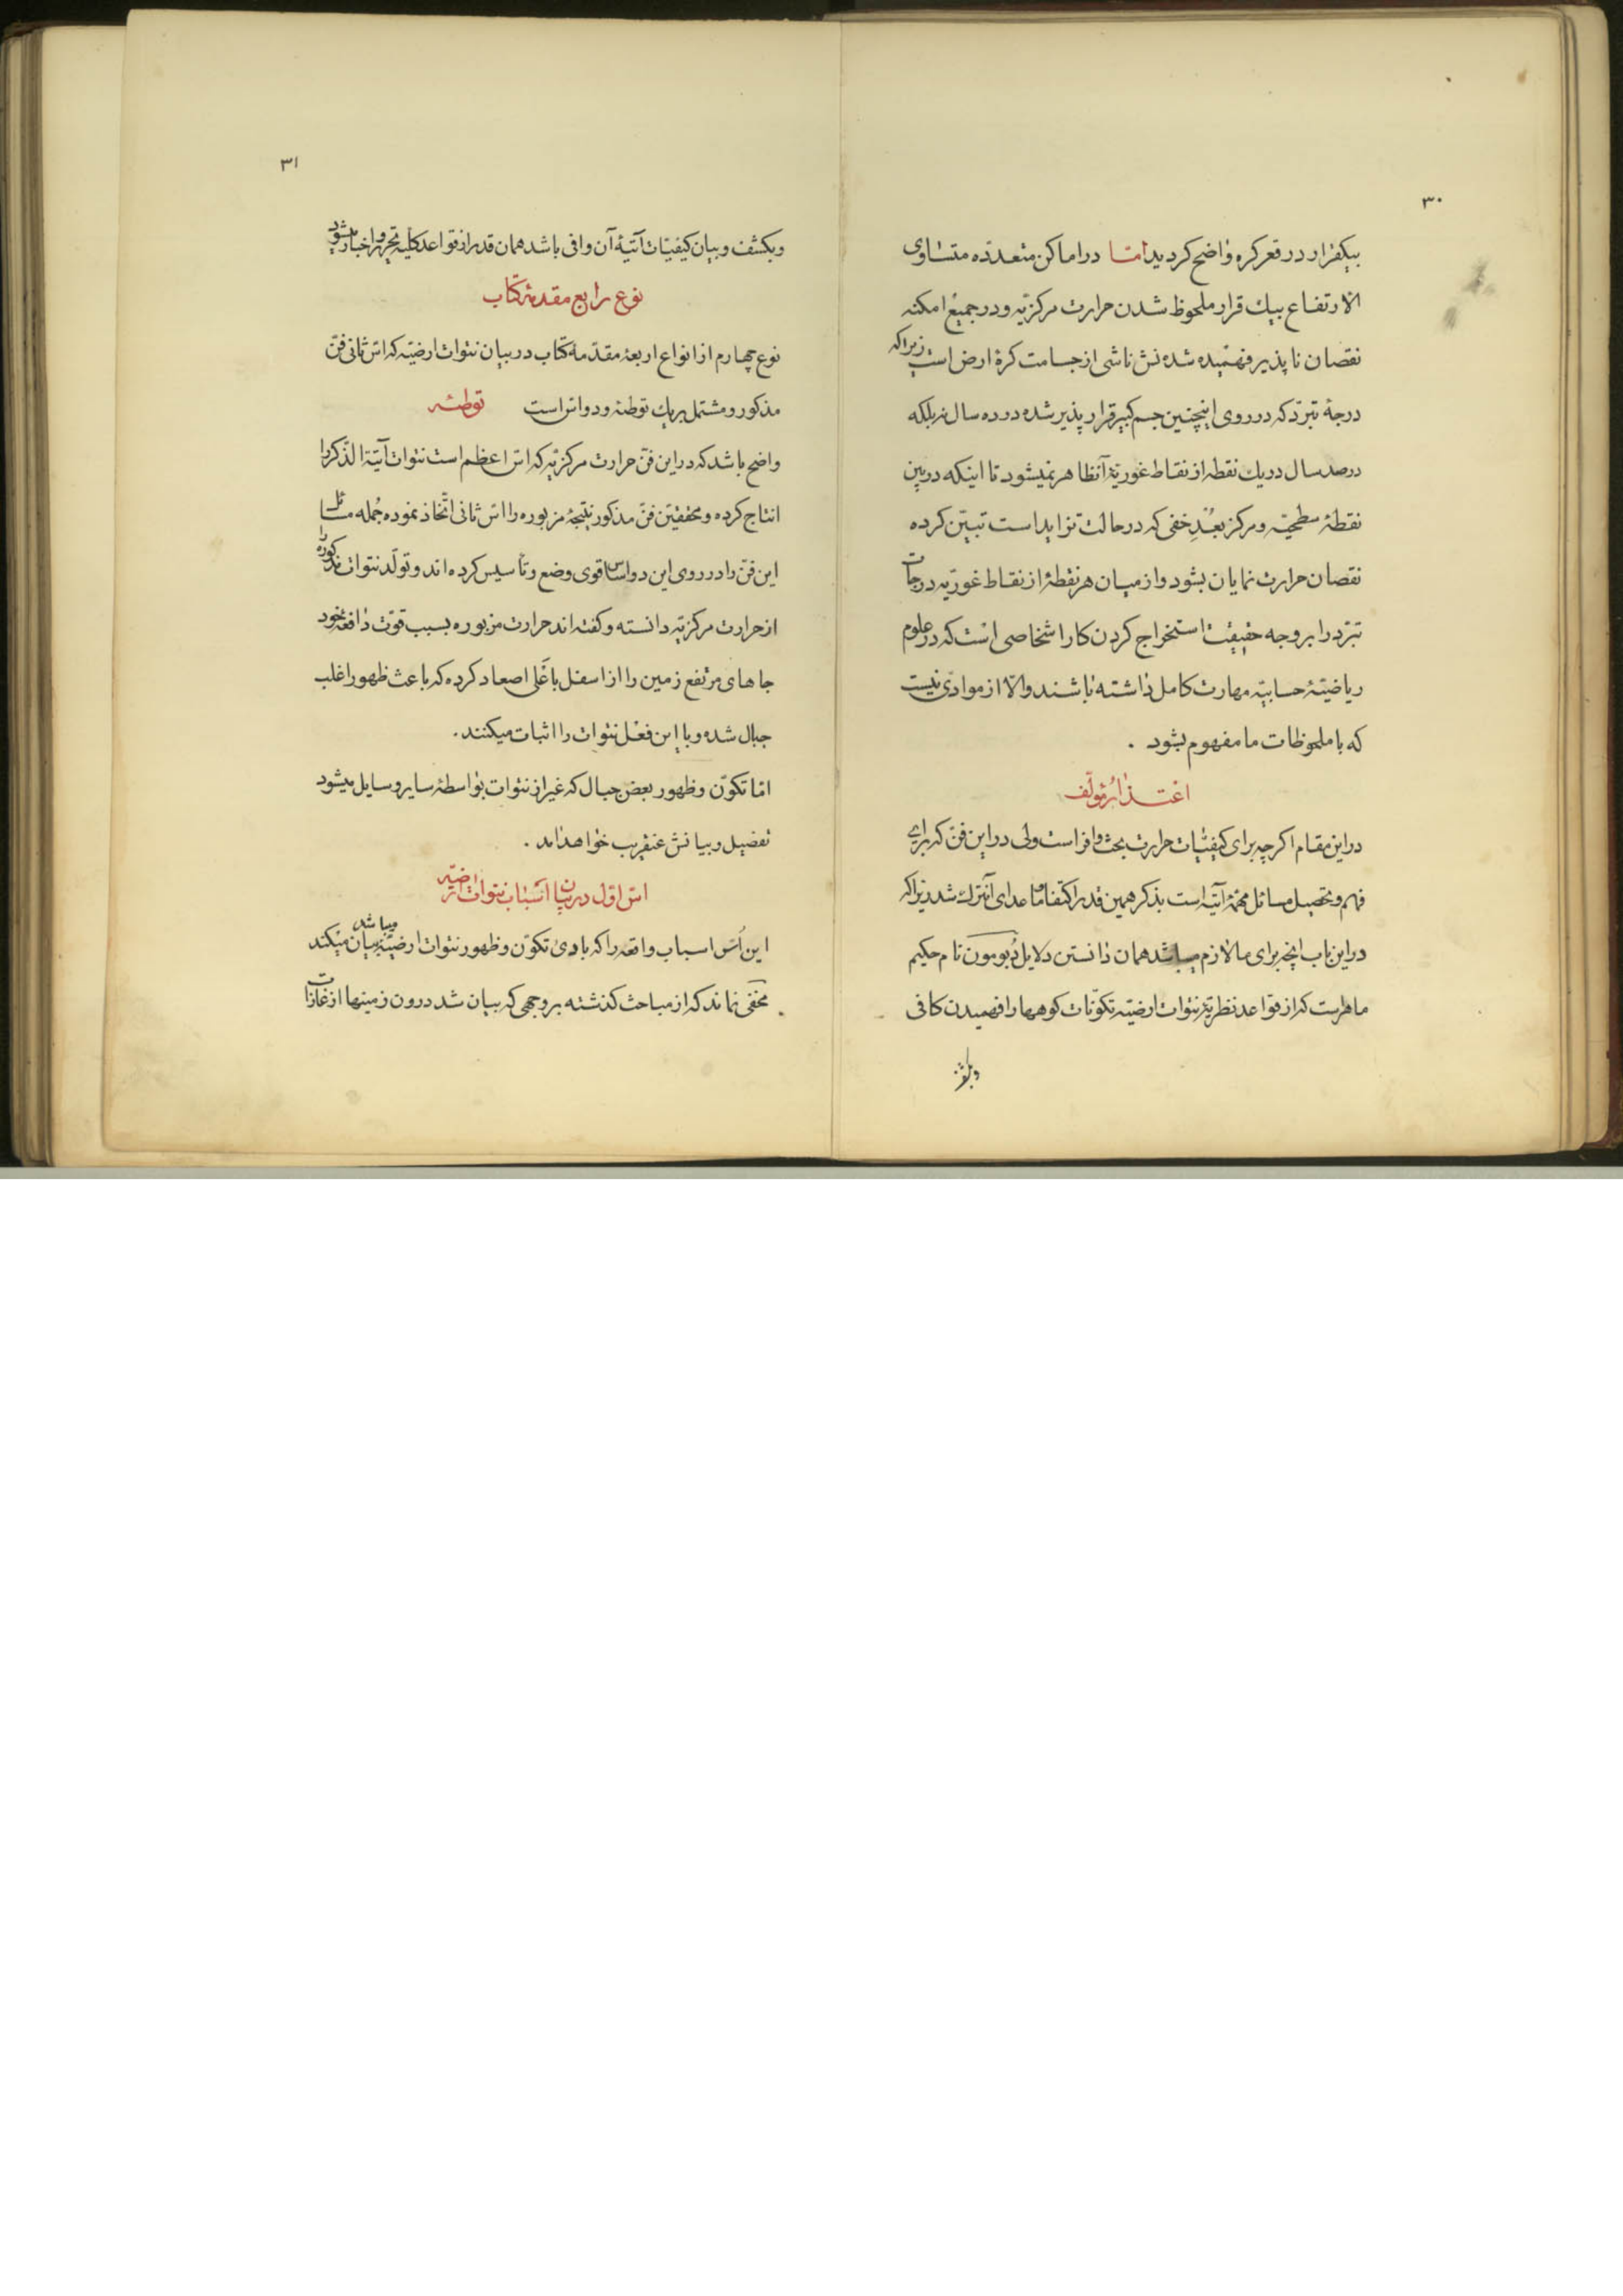 ۳۰
بیکقرار در قعر کره واضح کردید امّا در اماکن متعدّده متساوی
الارتفاع بیك قرار ملحوظ شدن حرارت مرکزیّه و در جمیع امکنه
نقصان ناپذیر فهمیده شده نش ناشی از جسامت کرهٔ ارض است زیراکه
درجهٔ تبرّد که در روی اینچنین جسم کبیر قرار پذیر شده در ده سال نه بلکه
در صد سال در یك نقطه از نقاط غوریّهٔ آن ظاهر نمیشود تا اینکه در بین
نقطهٔ سطحیّه و مرکز بُعْدِ خفی که در حالت تزاید است تبیّن کرده
نقصان حرارت نمایان بشود و از میان هر نقطهٔ از نقاط غوریّه درجات
تبرّد را بر وجه حقیقت استخراج کردن کار اشخاصی است که در علوم
ریاضیّهٔ حسابیّه مهارت کامل داشته باشند والّا از موادّی نیست
که با ملحوظات ما مفهوم بشود .
اعتذار مؤلّف
در این مقام اکرچه برای کیفیّات حرارت بحث وافر است ولی در این فنّ که برای
فهم و تحصیل مسائل مهمّهٔ آتیه است بذکر همین قدر اکتفا ما عدای آن ترك شد زیراکه
در این باب آنچه برای ما لازم میباشد همان دانستن دلایل دُبومون نام حکیم
ماهرست که از قواعد نظریّهٔ نتوات ارضیّه تکوّنات کوهها را فهمیدن کافی
۳۱
و بکشف و بیان کیفیّات آتیهٔ آن وافی باشد همان قدر از قواعد کلّیه تحریر و اخبار میشود
نوع رابع مقدمهٔ کتاب
نوع چهارم از انواع اربعهٔ مقدّمهٔ کتاب در بیان نتوات ارضیّه که اسّ ثانی فنّ
مذکور و مشتمل بریك توطئه و دو اسّ است توطئه
واضح باشد که در این فنّ حرارت مرکزیّه که اسّ اعظم است نتوات آتیة الذّکر را
انتاج کرده و محقّقین فنّ مذکور نتیجهٔ مزبوره را اسّ ثانی اتّخاذ نموده جُمله مسائل
این فنّ را در روی این دو اساس قوی وضع و تأسیس کرده اند و تولّد نتوات مذکوره را
از حرارت مرکزیّه دانسته و کفته اند حرارت مزبوره بسبب قوّت دافعهٔ خود
جاهای مرتفع زمین را از اسفل باعْلی اصعاد کرده که باعث ظهور اغلب
جبال شده و با این فعل نتوات را اثبات میکنند .
امّا تکوّن و ظهور بعض جبال که غیر از نتوات بواسطهٔ سایر وسایل میشود
تفصیل و بیانش عنقریب خواهد آمد .
اسّ اوّل در بیان اسباب نتوات ارضیّه
این اُسّ اسباب واقعه را که بادیٔ تکوّن و ظهور نتوات ارضیّه میباشد بیان میکند
مخفی نماند که از مباحث کذشته بر وجهی که بیان شد درون زمینها از غازات